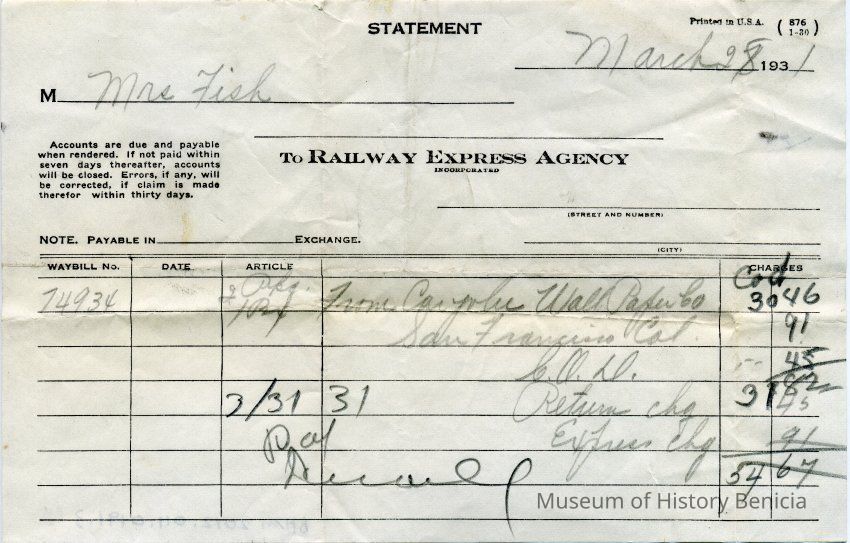 STATEMENT
Printed in U.S.A. ( 876 1-30 )
March 28 1931
M Mrs Fish
Accounts are due and payable
when rendered. If not paid within
seven days thereafter, accounts
will be closed. Errors, if any, will
be corrected, if claim is made
therefor within thirty days.
To RAILWAY EXPRESS AGENCY
INCORPORATED
(STREET AND NUMBER)
NOTE. PAYABLE IN EXCHANGE.
(CITY)
WAYBILL No. DATE ARTICLE CHARGES
Cod
74934 2 From Wall Paper Co 30 46
San Francisco Cal 91
C.O.D. 45
31 82
3/31 31 Return chg 45
Pd Express chg 91
54 67
Museum of History Benicia